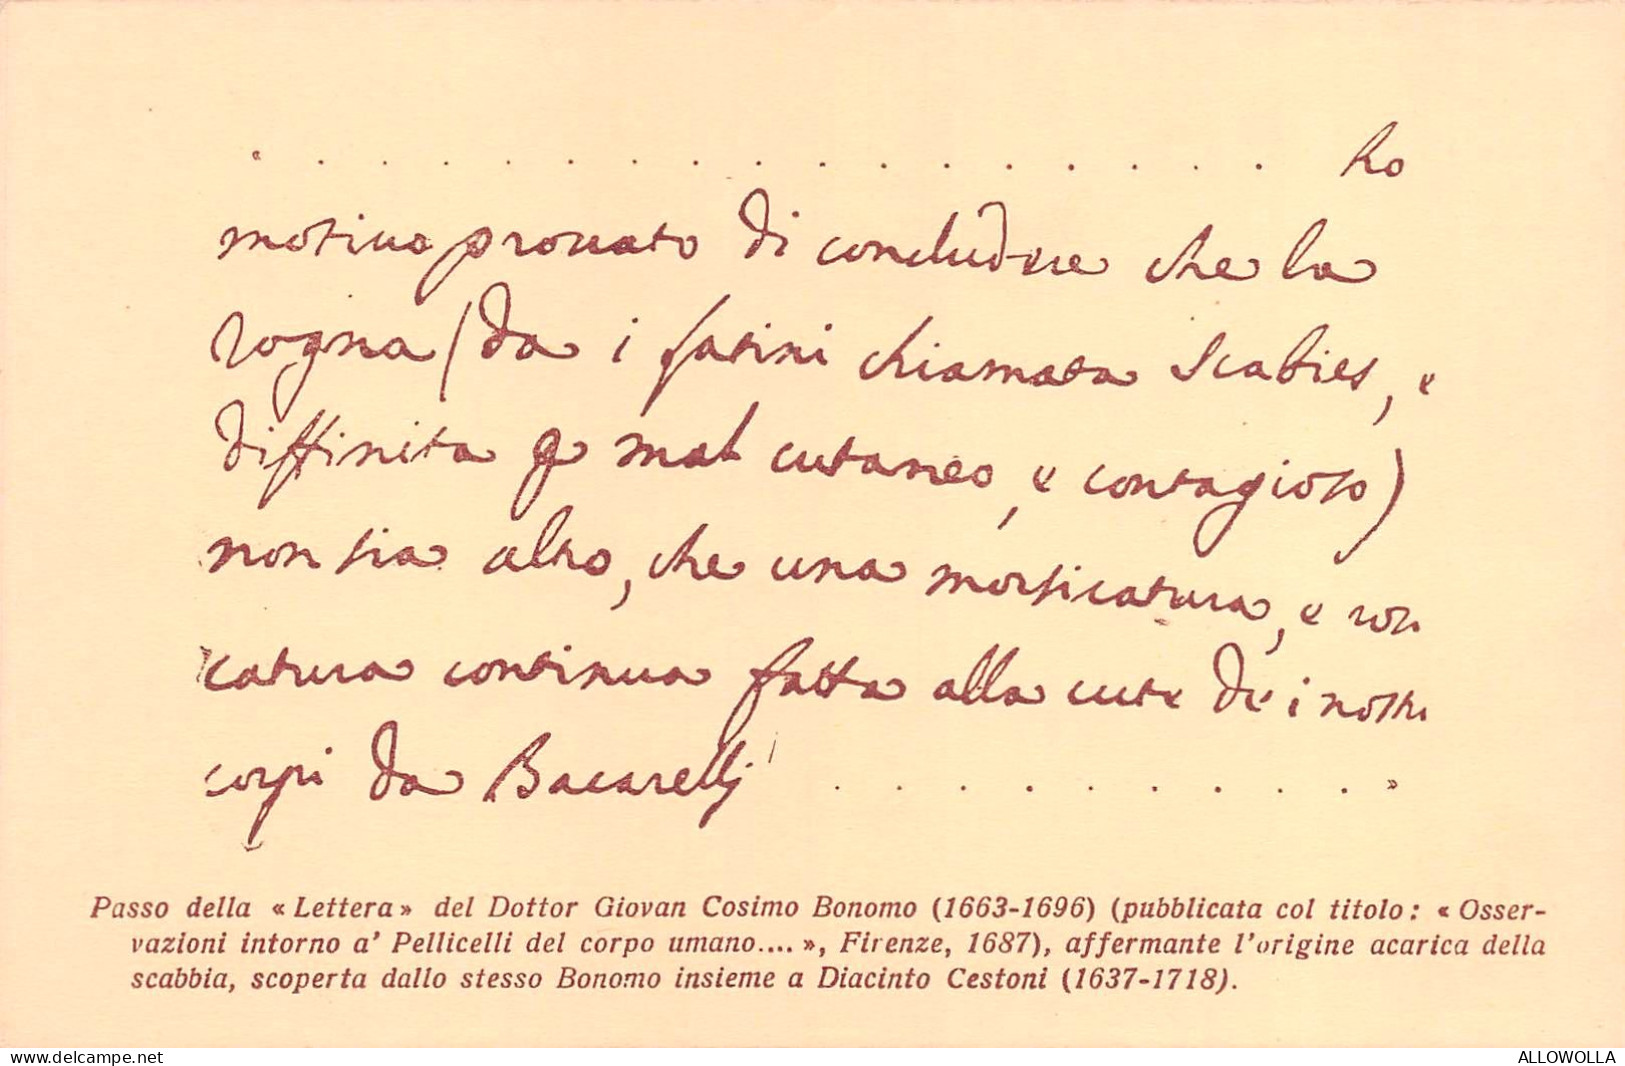 « . . . . . . . . . . . . . . . . ho
motiuo prouato di concludere che la
rogna (da i latini chiamata Scabies, e
diffinita p mal cutaneo, e contagioso)
non sia altro, che una morsicatura, e ron
catura continua fatta alla cute de i nostri
corpi da Bacarelli . . . . . . . . . »
Passo della « Lettera » del Dottor Giovan Cosimo Bonomo (1663-1696) (pubblicata col titolo : « Osser-
vazioni intorno a' Pellicelli del corpo umano.... », Firenze, 1687), affermante l'origine acarica della
scabbia, scoperta dallo stesso Bonomo insieme a Diacinto Cestoni (1637-1718).
www.delcampe.net
ALLOWOLLA